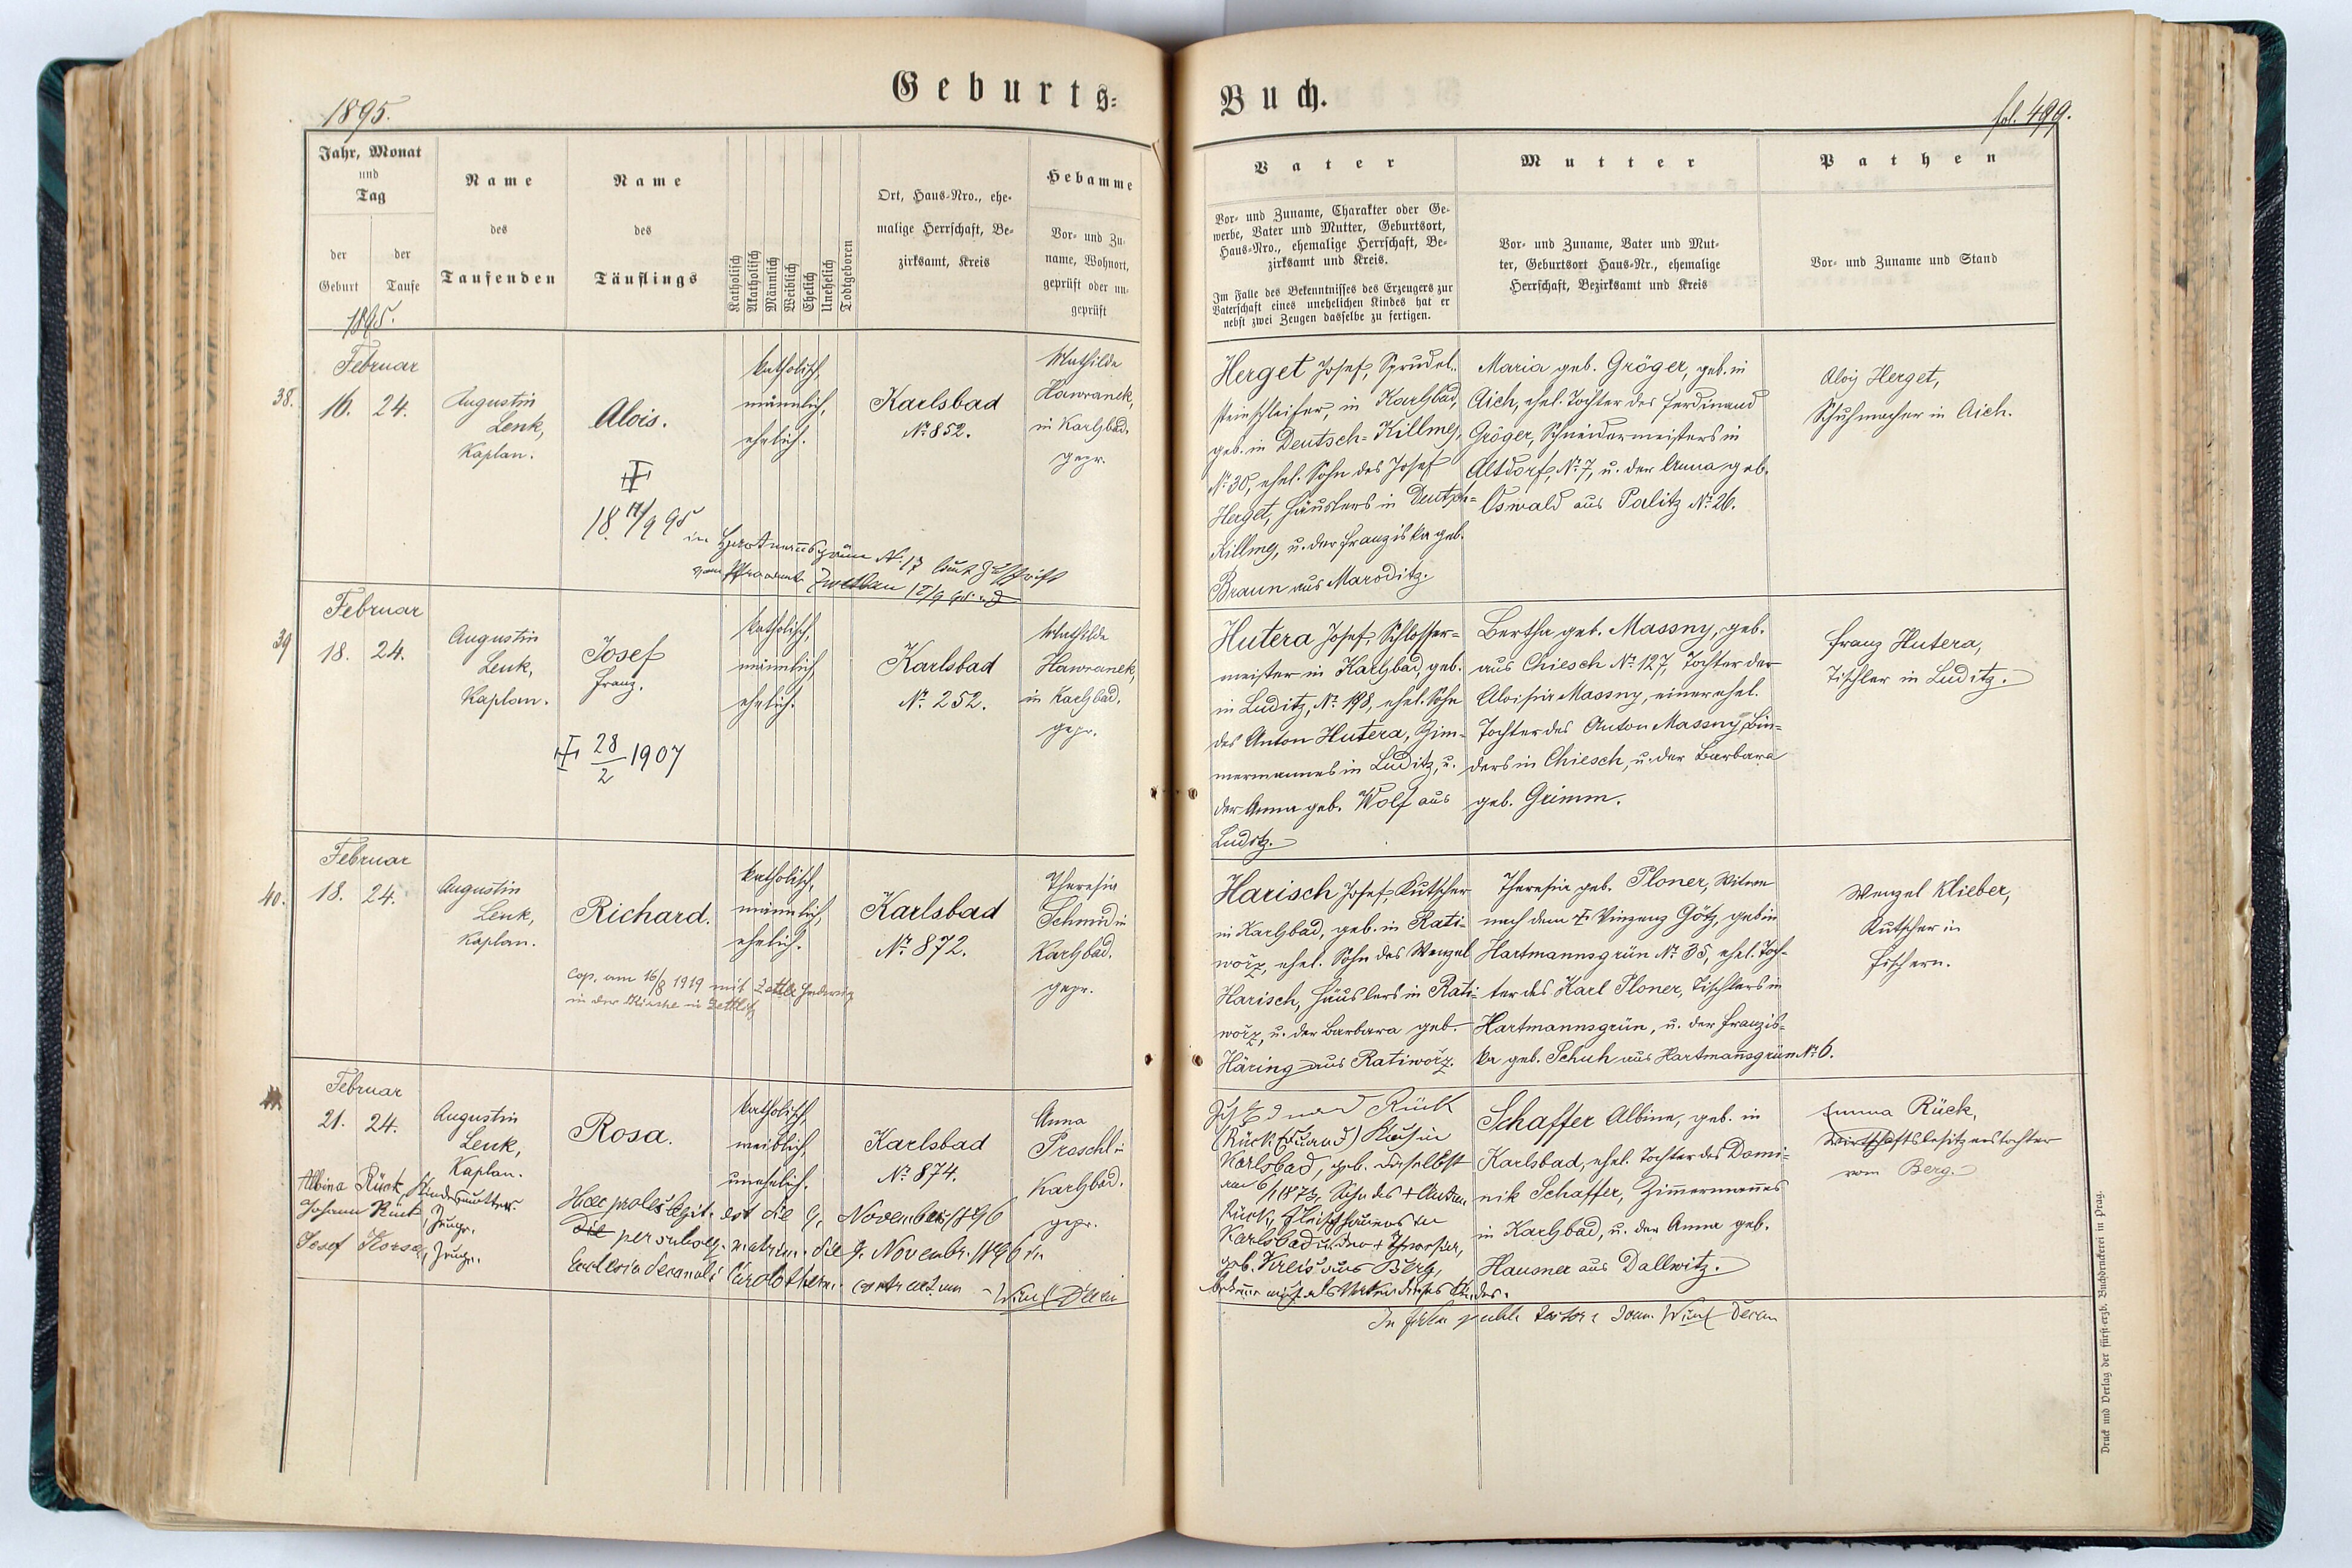 Geburts-
Buch.
1895.
fol. 499.
Jahr, Monat
und
Tag
der Geburt
der Taufe
Name
des
Taufenden
Name
des
Täuflings
Katholisch
Akatholisch
Männlich
Weiblich
Ehelich
Unehelich
Todtgeboren
Ort, Haus-Nro., ehe-
malige Herrschaft, Be-
zirksamt, Kreis
Hebamme
Vor- und Zu-
name, Wohnort,
geprüft oder un-
geprüft
Vater
Vor- und Zuname, Charakter oder Ge-
werbe, Vater und Mutter, Geburtsort,
Haus-Nro., ehemalige Herrschaft, Be-
zirksamt und Kreis.
Im Falle des Bekenntnisses des Erzeugers zur
Vaterschaft eines unehelichen Kindes hat er
nebst zwei Zeugen dasselbe zu fertigen.
Mutter
Vor- und Zuname, Vater und Mut-
ter, Geburtsort Haus-Nr., ehemalige
Herrschaft, Bezirksamt und Kreis
Pathen
Vor- und Zuname und Stand
1895.
38.
Februar
16. 24.
Augustin
Lenk,
Kaplan.
Alois.
18 9 95
in N. 17 laut Zuschrift
vom Pfarramte
katholisch,
männlich,
ehelich.
Karlsbad
No 852.
Mathilde
Hawranek,
in Karlsbad.
gepr.
Herget Josef, Sprudel-
steinschleifer, in Karlsbad,
geb. in Deutsch-Killmes,
No 30, ehel. Sohn des Josef
Herget, Häuslers in Deutsch-
Killmes, u. der Franziska geb.
Braun aus Maroditz.
Maria geb. Gröger, geb. in
Aich, ehel. Tochter des Ferdinand
Gröger, Schneidermeisters in
Altdorf, No 7, u. der Anna geb.
Oswald aus Palitz No 26.
Alois Herget,
Schuhmacher in Aich.
39
Februar
18. 24.
Augustin
Lenk,
Kaplan.
Josef
Franz.
28/2 1907
katholisch,
männlich,
ehelich.
Karlsbad
No 252.
Mathilde
Hawranek,
in Karlsbad.
gepr.
Hutera Josef, Schlosser-
meister in Karlsbad, geb.
in Luditz, No 198, ehel. Sohn
des Anton Hutera, Zim-
mermannes in Luditz, u.
der Anna geb. Wolf aus
Luditz.
Bertha geb. Massny, geb.
aus Chiesch No 127, Tochter der
Aloisia Massny, einer ehel.
Tochter des Anton Massny, Bin-
ders in Chiesch, u. der Barbara
geb. Grimm.
Franz Hutera,
Tischler in Luditz.
40.
Februar
18. 24.
Augustin
Lenk,
Kaplan.
Richard.
cop. am 16/8 1919 mit Hedwig
in der Kirche in Zettlitz
katholisch,
männlich,
ehelich.
Karlsbad
No 872.
Theresia
Schmid in
Karlsbad.
gepr.
Harisch Josef, Kutscher
in Karlsbad, geb. in Rati-
wořz, ehel. Sohn des Wenzel
Harisch, Häuslers in Rati-
wořz, u. der Barbara geb.
Häring aus Ratiwořz.
Theresia geb. Ploner, Witwe
nach dem † Vinzenz Götz, geb in
Hartmannsgrün No 35, ehel. Toch-
ter des Karl Ploner, Tischlers in
Hartmannsgrün, u. der Franzis-
ka geb. Schuh aus Hartmannsgrün No 6.
Wenzel Klieber,
Kutscher in
Fischern.
Februar
21. 24.
Augustin
Lenk,
Kaplan.
Albina Rück, Kindesmutter.
Johann Rück, Zeuge.
Josef Zeuge.
Rosa.
Haec proles legit. est die 9. November 1896
die per subseq. matrim. die 9. Novembr. 1896 in
Ecclesia decanali contractum
katholisch,
weiblich,
unehelich.
Karlsbad
No 874.
Anna
Proschl in
Karlsbad.
gepr.
Ich Eduard Rück
(Rück Eduard) in
Karlsbad, geb. daselbst
am 6/1 1873, Sohn des † Anton
Rück, Fleischhauers in
Karlsbad u. der † Theresia,
geb. Kreis aus Berg,
bekenne mich als Vater dieses Kindes.
Schaffer Albine, geb. in
Karlsbad, ehel. Tochter des Domi-
nik Schaffer, Zimmermannes
in Karlsbad, u. der Anna geb.
Hausner aus Dallwitz.
Emma Rück,
Wirtschaftsbesitzerstochter
von Berg.
Druck und Verlag der fürst-erzb. Buchdruckerei in Prag.